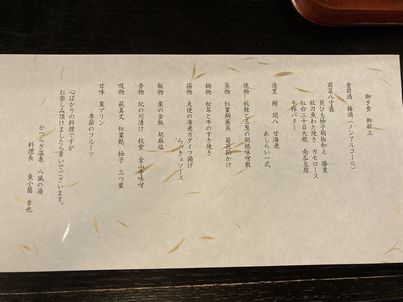 御夕食 御献立
食前酒 梅酒(ノンアルコール)
前菜八寸盛
貝ひも柚子胡椒和え 勝栗
秋刀魚わた焼き カモロース
紅白二十日大根 南瓜豆腐
干柿バター
造里 鮪 間八 甘海老
あしらい一式
焼物 秋鮭と玉葱の胡桃味噌敷
蒸物 紅葉鯛蕪蒸 菊花餡かけ
鍋物 松茸と牛のすき焼き
揚物 天使の海老カダイフ揚げ
らっきょソース
飯物 栗の釜飯 胡麻塩
香物 紀の川漬け 秋茄 金山寺味噌
吸物 萩真丈 紅葉麩 柚子 三つ葉
甘味 栗プリン
季節のフルーツ
心ばかりの料理ですが
お楽しみ頂けましたら幸いでございます。
かつらぎ温泉 八風の湯
料理長 東小薗 幸也